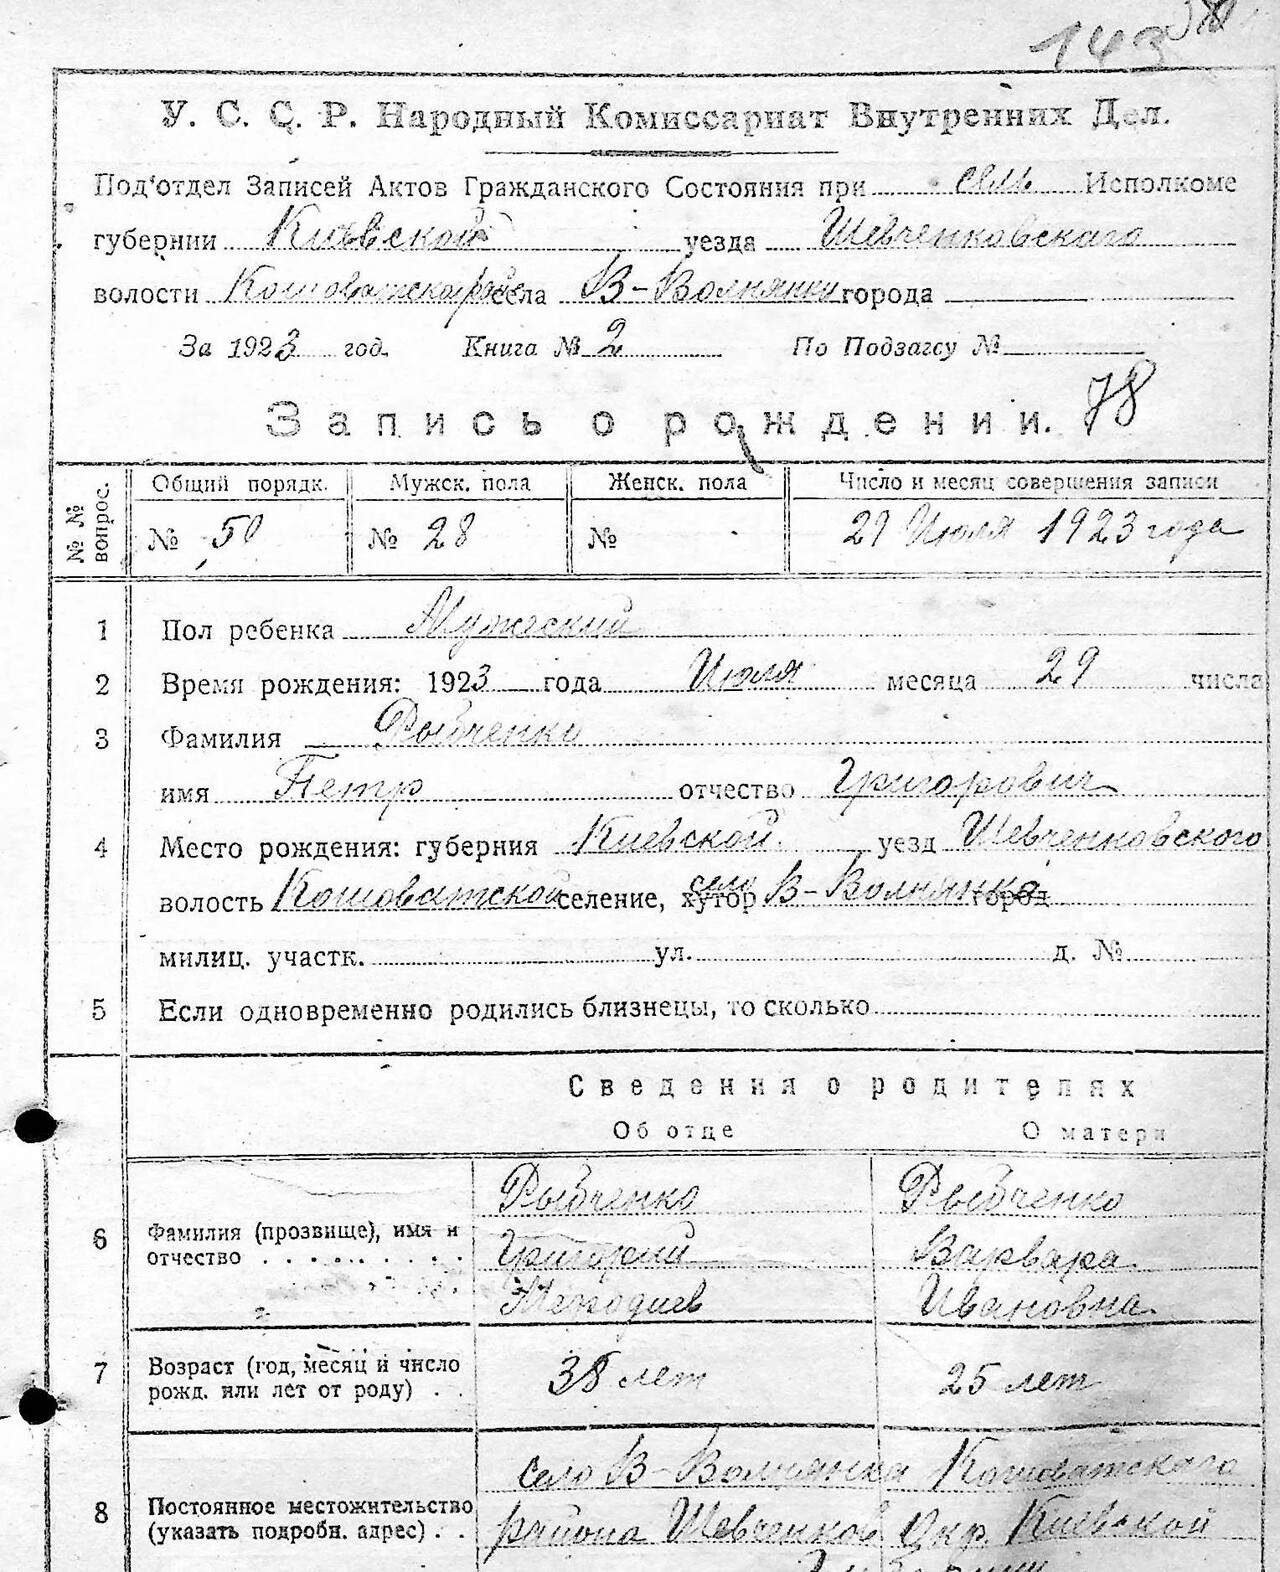 143
У. С. С. Р. Народный Комиссариат Внутренних Дел.
Под'отдел Записей Актов Гражданского Состояния при сель Исполкоме
губернии Киевской уезда Шевченковскаго
волости села В-Волнянки города
За 1923 год. Книга № 2 По Подзагсу №
Запись о рождении. 78
№ № вопрос. Общий порядк. Мужск. пола Женск. пола Число и месяц совершения записи
№ 50 № 28 № 29 Июля 1923 года
1 Пол ребенка Мужеский
2 Время рождения: 1923 года Июля месяца 29 числа
3 Фамилия Рыбченко
имя Петр отчество Григорович
4 Место рождения: губерния Киевской уезд Шевченковского
волость Кошоватской селение, хутор село В-Волнянка город
милиц. участк. ул. д. №
5 Если одновременно родились близнецы, то сколько
Сведения о родителях
Об отце О матери
Рыбченко Рыбченко
6 Фамилия (прозвище), имя и отчество . . . . . . . . . Григорий Варвара
Мефодиев Ивановна
7 Возраст (год, месяц и число рожд. или лет от роду) . . 38 лет 25 лет
село В-Волнянка Кошоватского
8 Постоянное местожительство (указать подробн. адрес) . . района Шевченков Окр. Киевской